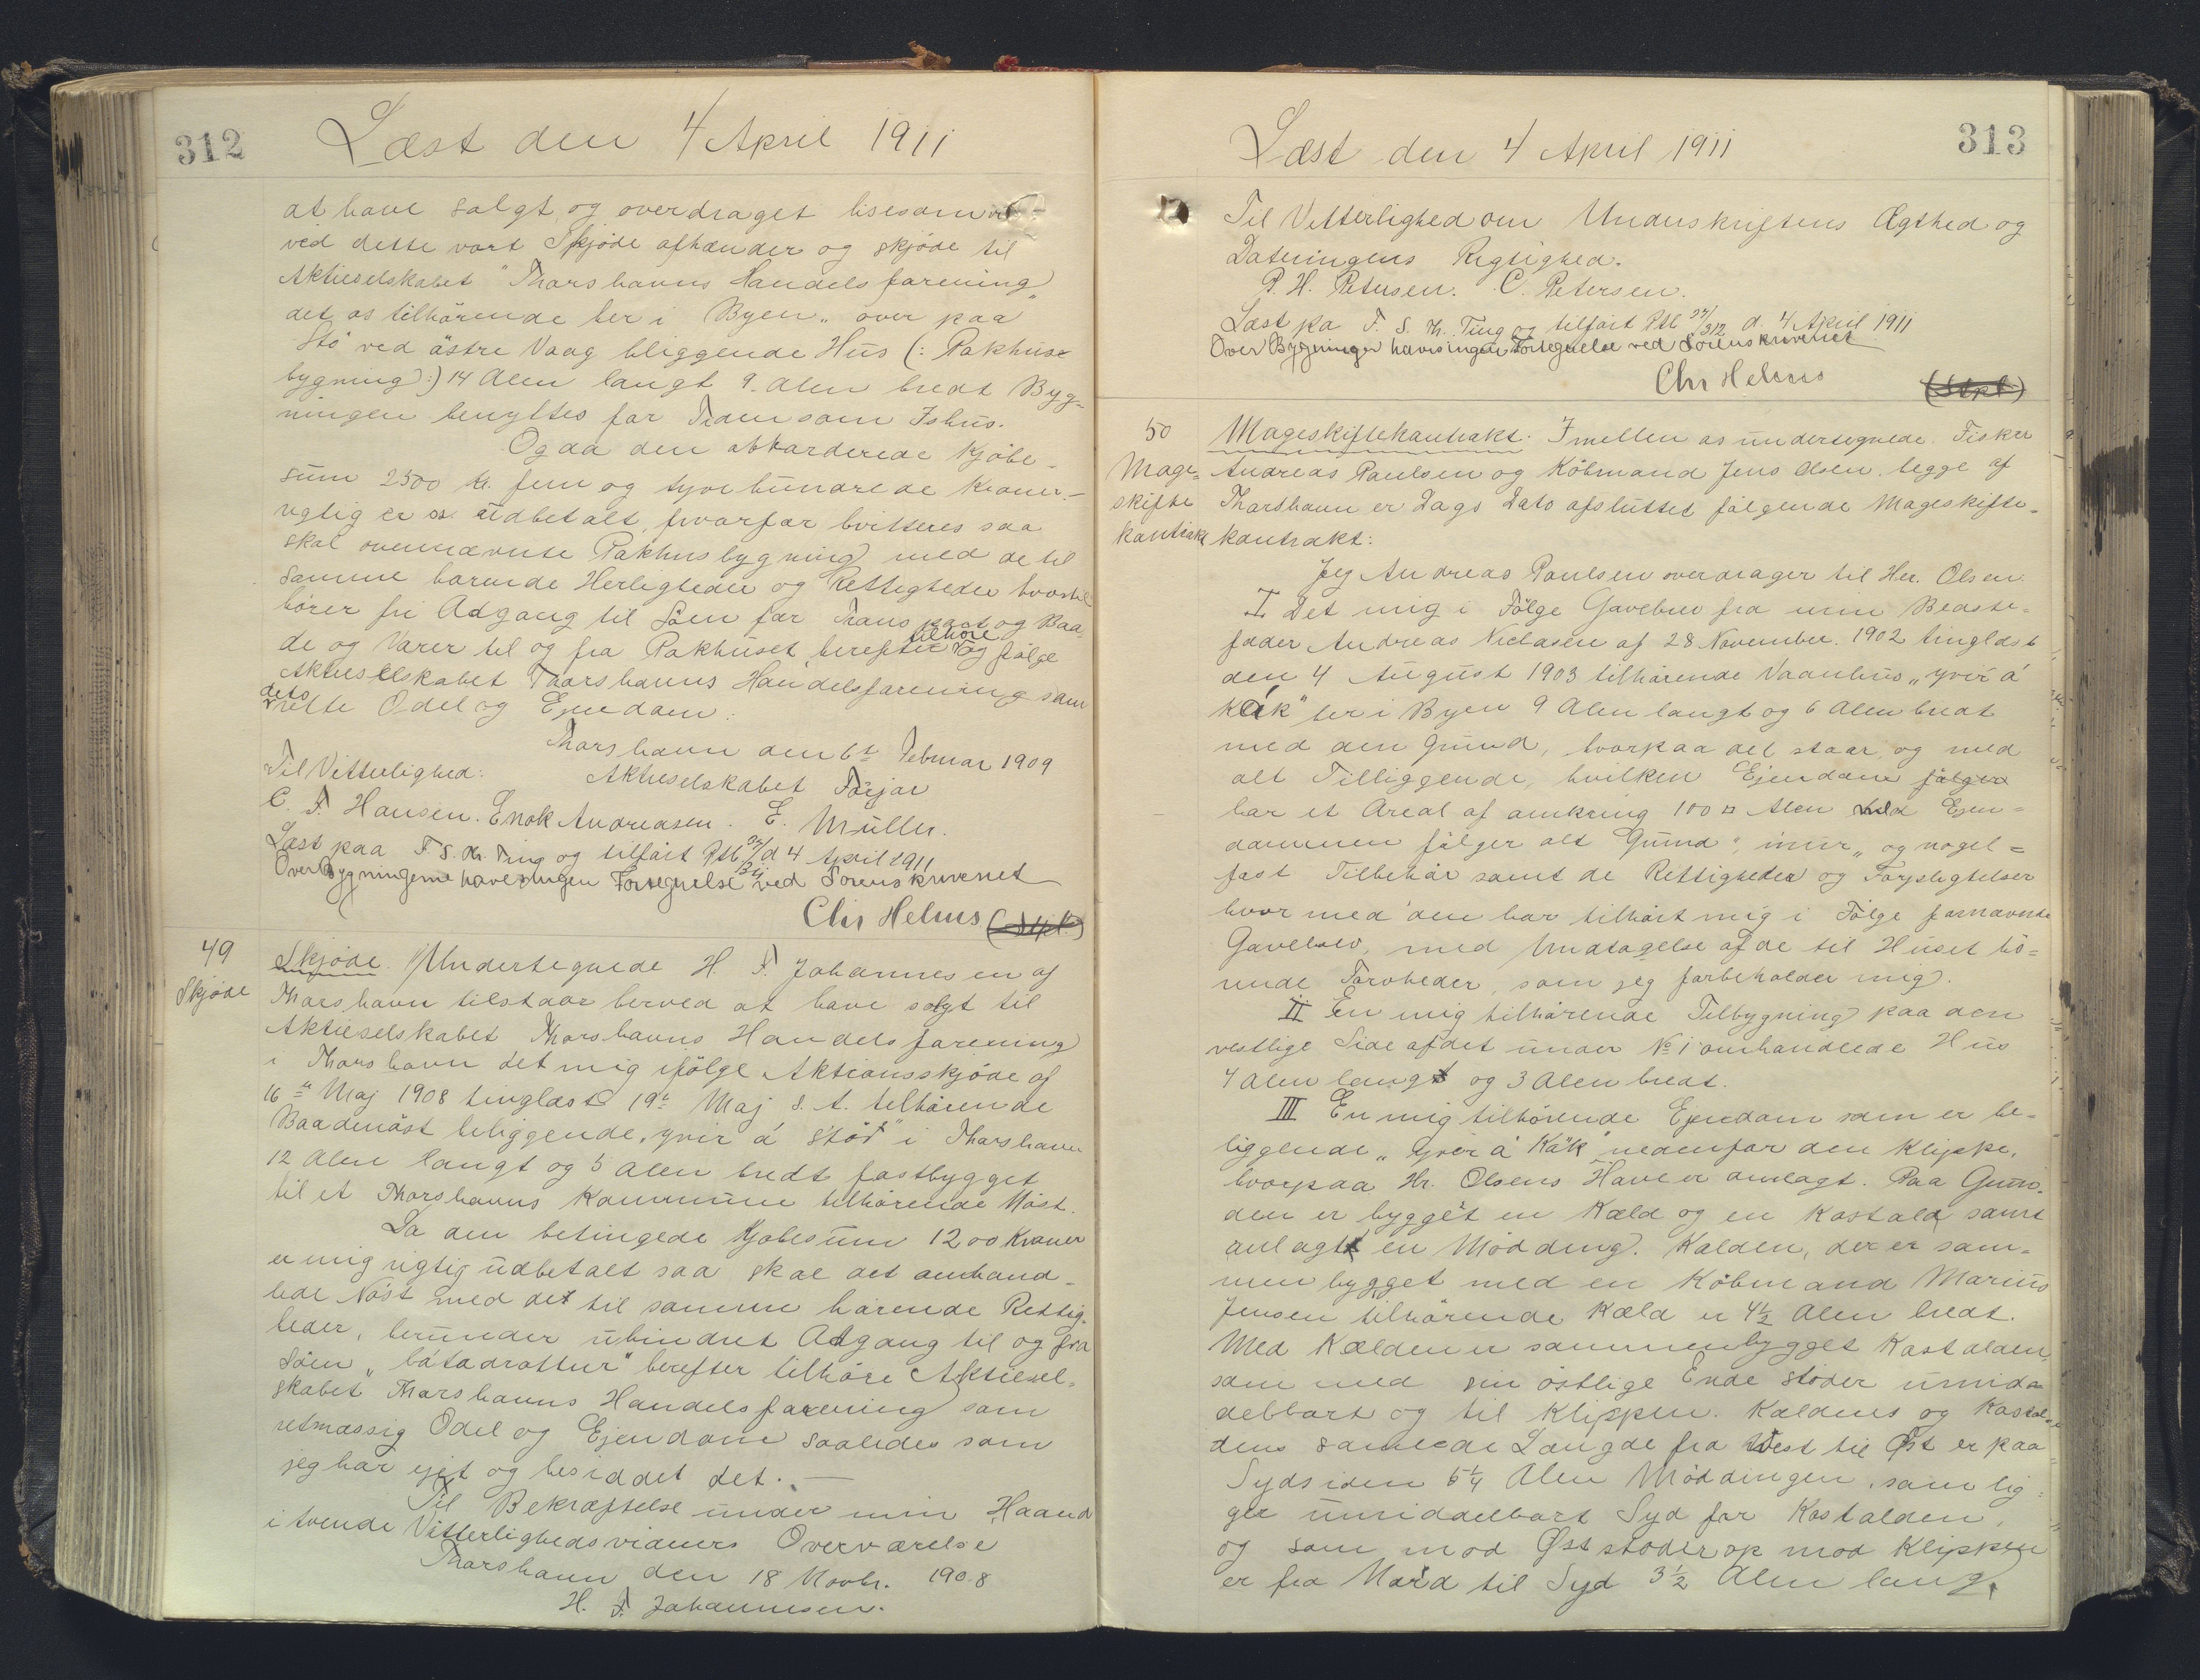 312
Læst den 4 April 1911
at have solgt og overdraget lisesom vi
ved dette vort Skjöde afhænder og skjöde til
Aktieselskabet "Thorshavns Handelsforening"
det os tilhörende her i Byen "over paa
Stö ved östre Vaag bliggende Hus (: Pakhuse
bygning :) 14 Alen langt 9 Alen bredt Byg=
ningen benyttes for Tiden som Ishus.
Og da den akkorderede Kjöbe-
sum 2500 Kr. fem og tyve hundrede Kroner.-
rigtig er os udbetalt, hvorfor kvitteres saa
skal ovennævnte Pakhusbygning med de til
samme hörende Herligheder og Rettigheder hvortil
hörer fri Adgang til Söen for Transport og Baa
de og Varer til og fra Pakhuset, herefter tilhöre og fölge
Aktieselskabet Thorshavns Handelsforening som
dets rette Odel og Ejendom.
Thorshavn den 6te Februar 1909
Til Vitterlighed: Aktieselskabet Förjar
C. F. Hansen. Enok Andreasen. E. Müller.
Læst paa F. S. Th. Ting og tilfört Ptb. d 4 April 1911
Over Bygningerne haves ingen Forsegnelse ved Sorenskriveriet
Chr Helms (Stpl.)
49
Skjöde
Skjöde. Undertegnede H. F. Johannesen af
Thorshavn tilstaar herved at have solgt til
Aktieselskabet Thorshavns Handelsforening
i Thorshavn det mig ifölge Auktionsskjöde af
16de Maj 1908 tinglæst 19de Maj s. A. tilhörende
Baadenöst beliggende "yvir á Stöð" i Thorshavn
12 Alen langt og 5 Alen bredt fastbygget
til et Thorshavns Kommune tilhörende Nöst.
Da den betingede Kjöbesum 1200 Kroner
er mig rigtig udbetalt saa skal det omhand-
lede Nöst med det til samme hörende Rettig-
heder, herunder uhindret Adgang til og fra
Söen "bátadrøttur" herefter tilhöre Aktiesel-
skabet Thorshavns Handelsforening som
retmæssig Odel og Ejendom saaledes som
jeg har ejet og besiddet det. -
Til Bekræftelse under min Haand
i tvende Vitterlighedsvidners Overværelse
Thorshavn den 18 Novbr. 1908
H. F. Johannesen.
313
Læst den 4 April 1911
Til Vitterlighed om Underskriftens Ægthed og
Dateringens Rigtighed.
P. H. Petersen. C. Petersen.
Læst pa F. S. Th. Ting og tilfört Ptb 34/312 d. 4 April 1911
Over Bygninger haves ingen Forsegnelse ved Sorenskriveriet
Chr Helms (Stpl)
50
Mage=
skifte
kontrakt
Mageskiftekontrakt. Imellem os undertegnede. Fisker
Andreas Paulsen og Köbmand Jens Olsen begge af
Thorshavn er Dags Dato afsluttet fölgende Mageskifte-
kontrakt:
Jeg Andreas Poulsen overdrager til Her. Olsen:
I Det mig i Fölge Gavebrev fra min Bedste=
fader Andreas Niclasen af 28 November. 1902 tinglæst
den 4 August 1903 tilhörende Vaanhus "yvir á
Kák" her i Byen 9 Alen langt og 6 Alen bredt
med den Grund, hvorpaa det staar, og med
alt Tilliggende, hvilken Ejendom fölger
har et Areal af omkring 100 □ Alen Med Ejen=
dommen fölger alt Grund", mur" og nagel=
fast Tilbehör samt de Rettigheder og Forpligtelser
hvormed den har tilhört mig i Fölge fornævnte
Gavebrev, med Undtagelse af de til Huset hö=
rende Torvheder, som jeg forbeholder mig.
II En mig tilhörende Tilbygning paa den
vestlige Side af det under No 1 omhandlede Hus
4 Alen langt og 3 Alen bredt.
III En mig tilhörende Ejendom som er be=
liggende "yvir á Kák" nedenfor den Klippe,
hvorpaa Hr. Olsens Have er anlagt. Paa Grun-
den er bygget en Kæld og en Kostald samt
anlagt en Mödding. Kælden, der er sam=
men bygget med en Köbmand Marius
Jensen tilhörende Kæld er 4½ Alen bredt.
Med Kælden er sammenbygget Kostalden,
som med sin östlige Ende stöder umid=
delbart og til Klippen. Kældens og Kostal=
dens samlede Længde fra Vest til Øst er paa
Sydsiden 5¼ Alen Möddingen, som lig=
ger umiddelbart Syd for Kostalden,
og som mod Øst stöder op mod Klippen
er fra Nord til Syd 3½ Alen lang,